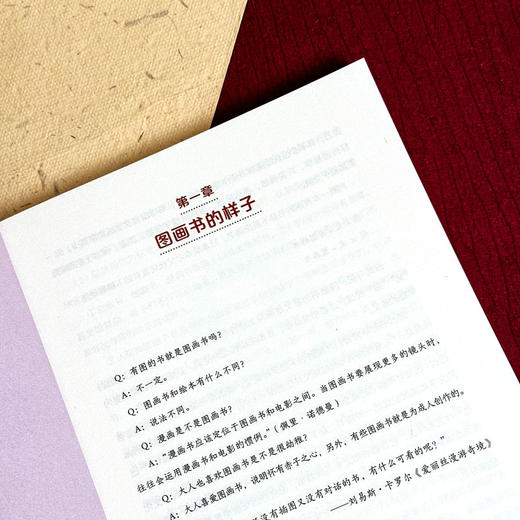 第一章
图画书的样子
Q：有图的书就是图画书吗？
A：不一定。
Q：图画书和绘本有什么不同？
A：说法不同。
Q：漫画是不是图画书？
A：“漫画书应该定位于图画书和电影之间。当图画书要展现更多的镜头时，
往往会运用漫画书和电影的惯例。”（佩里·诺德曼）
Q：大人也喜欢图画书是不是很幼稚？
A：大人喜爱图画书，说明怀有赤子之心，另外，有些图画书就是为成人创作的。
没有插图又没有对话的书，有什么可看的呢？”
——刘易斯·卡罗尔《爱丽丝漫游奇境》